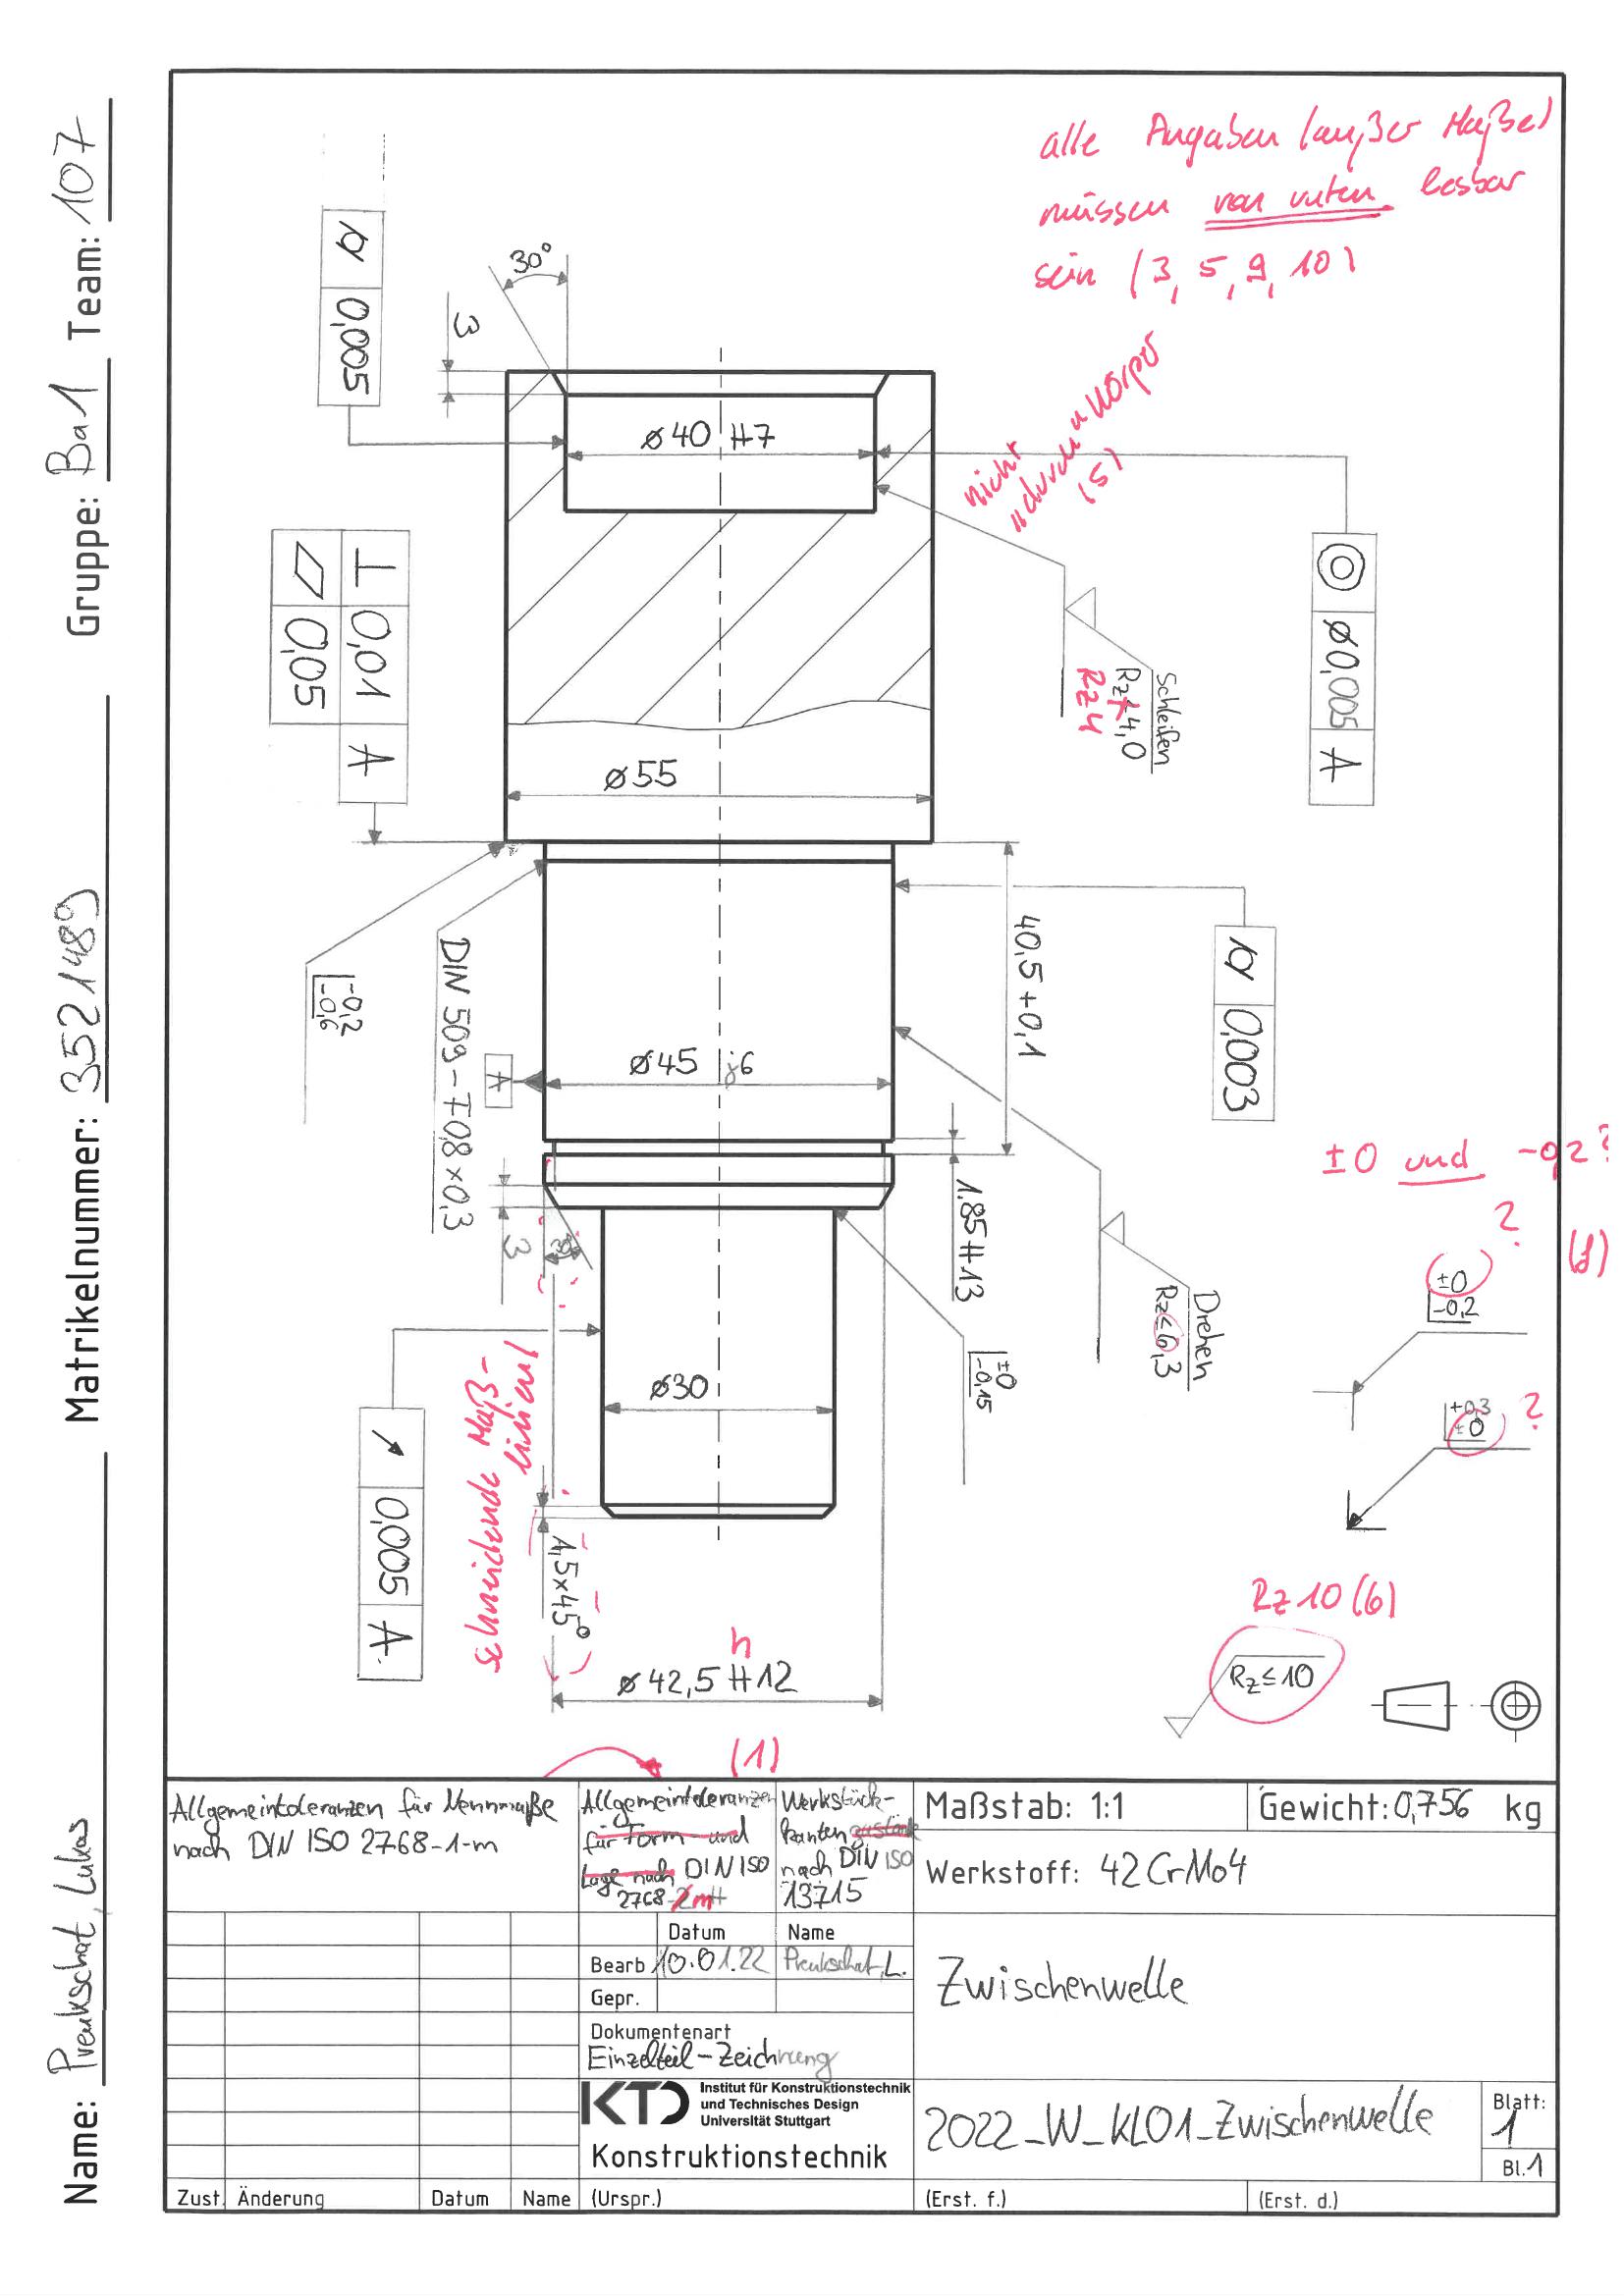 Name: Preukschat, Lukas
Matrikelnummer: 3521489
Gruppe: Ba1 Team: 107
alle Angaben (außer Maße)
müssen von unten lesbar
sein (3, 5, 9, 10)
30°
3
0,005
⌀40 H7
nicht
"durch" Körper
(5)
⌀0,005 A
⊥ 0,01 A
0,05
Schleifen
Rz≤4,0
Rz4
⌀55
-0,2
-0,6
DIN 509 - F0,8×0,3
40,5 +0,1
0,003
⌀45 j6
A
1.85 H13
3
30°
Drehen
Rz≤6,3
±0
-0,15
±0 und -0,2?
?
(8)
±0
-0,2
+0,3
±0
?
⌀30
0,005 A
schneidende Maß-
linien!
1,5×45°
h
⌀42,5 H12
(1)
Rz10 (6)
Rz≤10
Allgemeintoleranzen für Nennmaße
nach DIN ISO 2768-1-m
Allgemeintoleranzen
für Form- und
Lage nach DIN ISO
2768-2mH
Werkstück-
kanten
nach DIN ISO
13715
Maßstab: 1:1
Gewicht: 0,756 kg
Werkstoff: 42CrMo4
Datum Name
Bearb 10.01.22 Preukschat, L.
Gepr.
Zwischenwelle
Dokumentenart
Einzelteil-Zeichnung
KTD Institut für Konstruktionstechnik
und Technisches Design
Universität Stuttgart
Konstruktionstechnik
2022_W_KL01_Zwischenwelle
Blatt:
1
Bl.1
Zust. Änderung Datum Name (Urspr.) (Erst. f.) (Erst. d.)